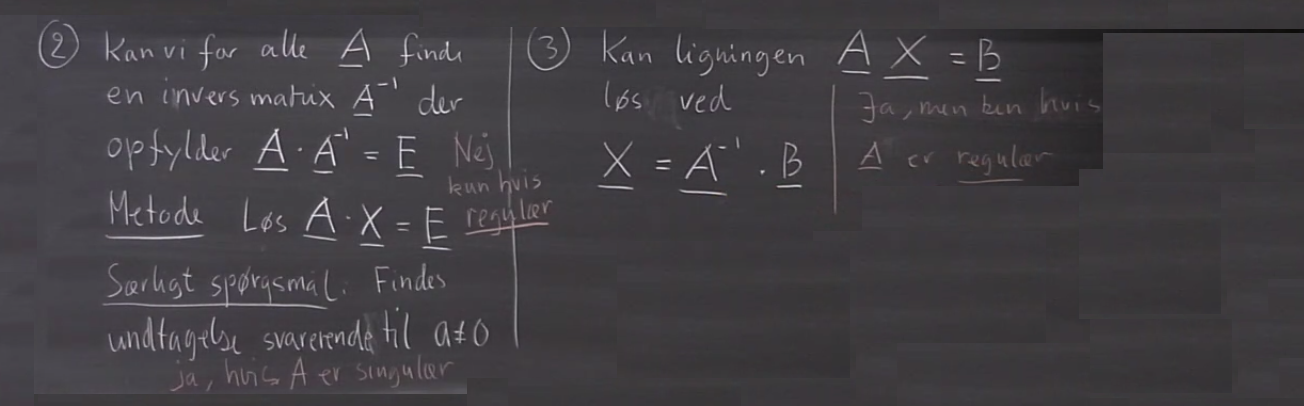 ② Kan vi for alle A finde
en invers matrix A⁻¹ der
opfylder A · A⁻¹ = E Nej
kun hvis
Metode Løs A · X = E regulær
Særligt spørgsmål: Findes
undtagelse svarerende til a≠0
ja, hvis A er singulær
③ Kan ligningen A X = B
løs ved
X = A⁻¹ · B
Ja, men kun hvis
A er regulær